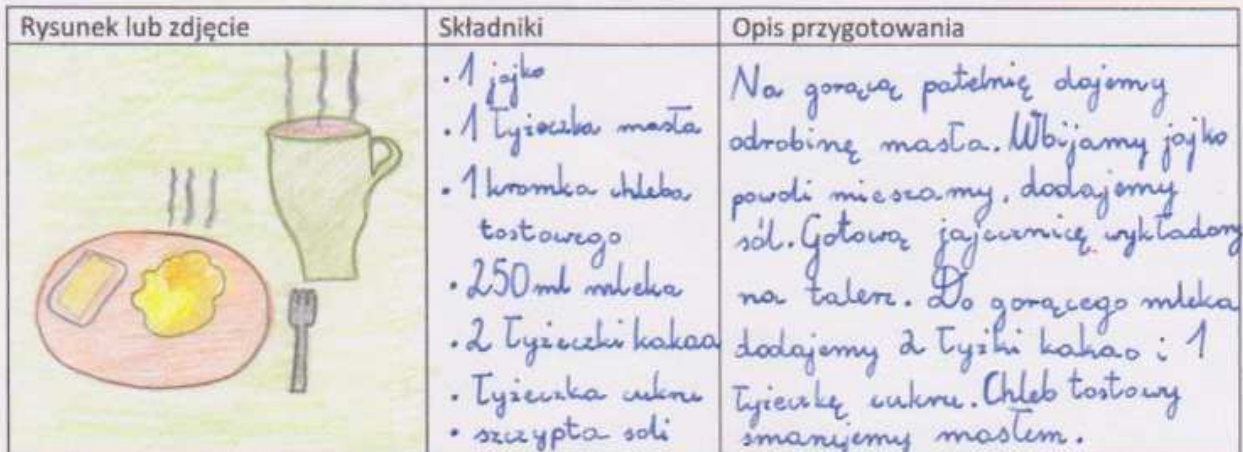 Rysunek lub zdjęcie
Składniki
Opis przygotowania
• 1 jajko
• 1 łyżeczka masła
• 1 kromka chleba
tostowego
• 250 ml mleka
• 2 łyżeczki kakao
• łyżeczka cukru
• szczypta soli
Na gorącą patelnię dajemy
odrobinę masła. Wbijamy jajko
powoli mieszamy, dodajemy
sól. Gotową jajecznicę wykładamy
na talerz. Do gorącego mleka
dodajemy 2 łyżki kakao i 1
łyżeczkę cukru. Chleb tostowy
smarujemy masłem.